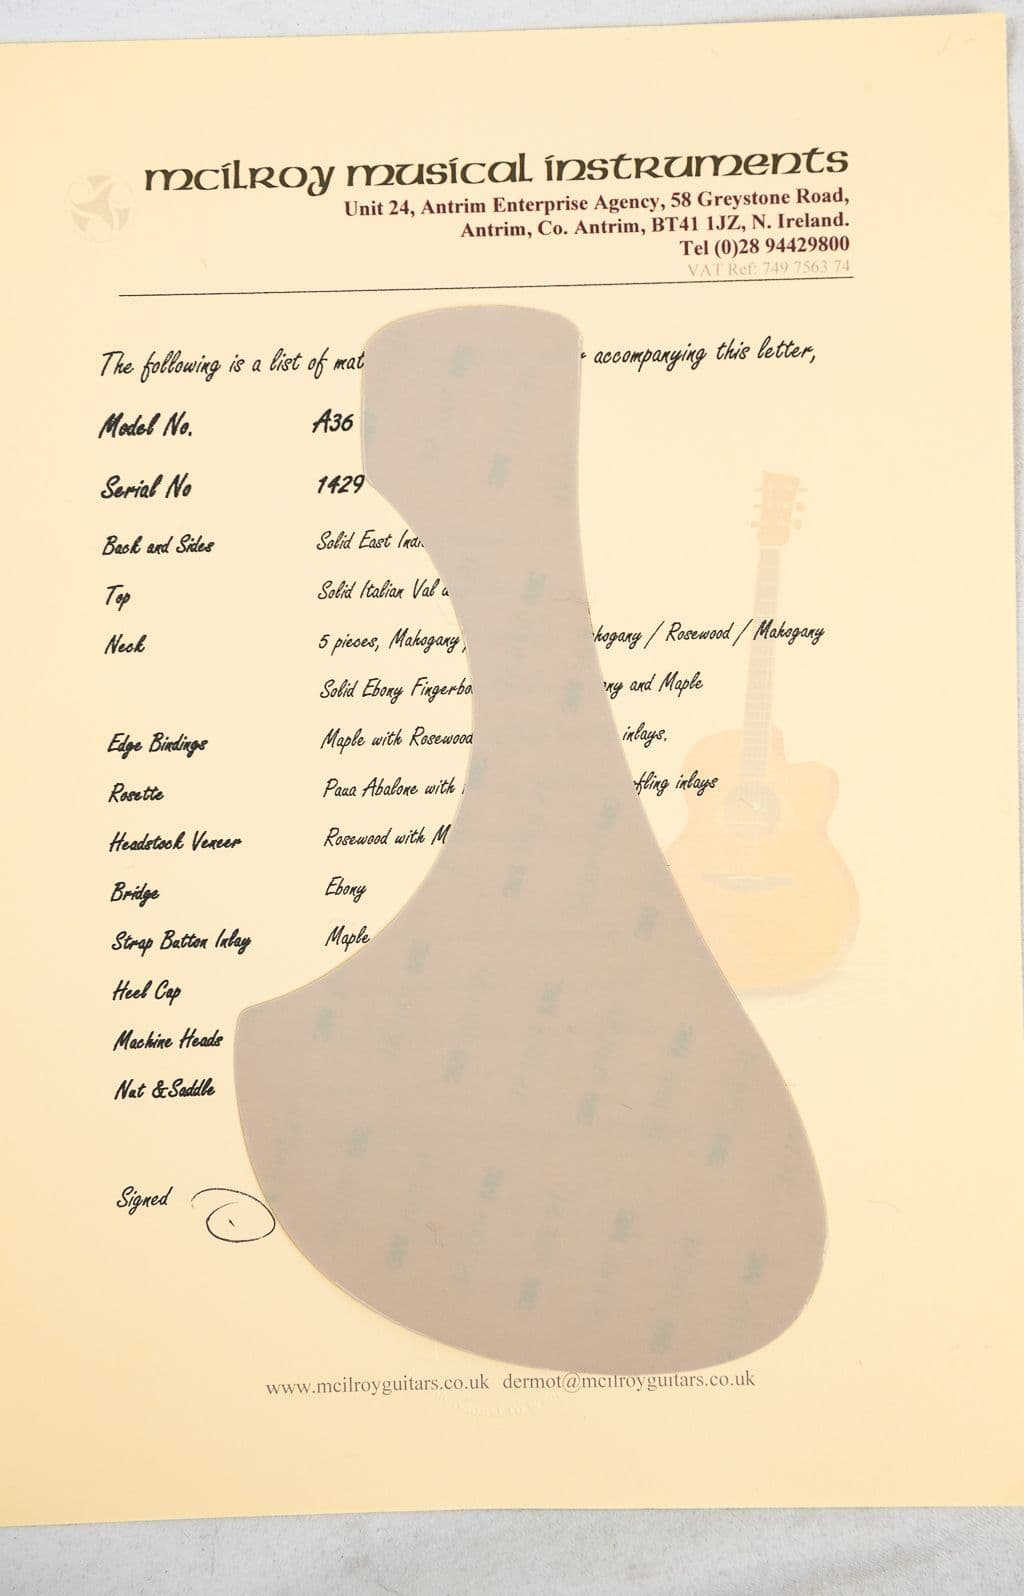 mcilroy musical instruments
Unit 24, Antrim Enterprise Agency, 58 Greystone Road,
Antrim, Co. Antrim, BT41 1JZ, N. Ireland.
Tel (0)28 94429800
VAT Ref: 749 7563 74
The following is a list of mat accompanying this letter,
Model No. A36
Serial No 1429
Back and Sides Solid East
Top Solid Italian Val
Neck 5 pieces, Mahogany hogany / Rosewood / Mahogany
Solid Ebony Fingerbo ny and Maple
Edge Bindings Maple with Rosewood inlays.
Rosette Paua Abalone with fling inlays
Headstock Veneer Rosewood with M
Bridge Ebony
Strap Button Inlay Maple
Heel Cap
Machine Heads
Nut & Saddle
Signed
www.mcilroyguitars.co.uk dermot@mcilroyguitars.co.uk